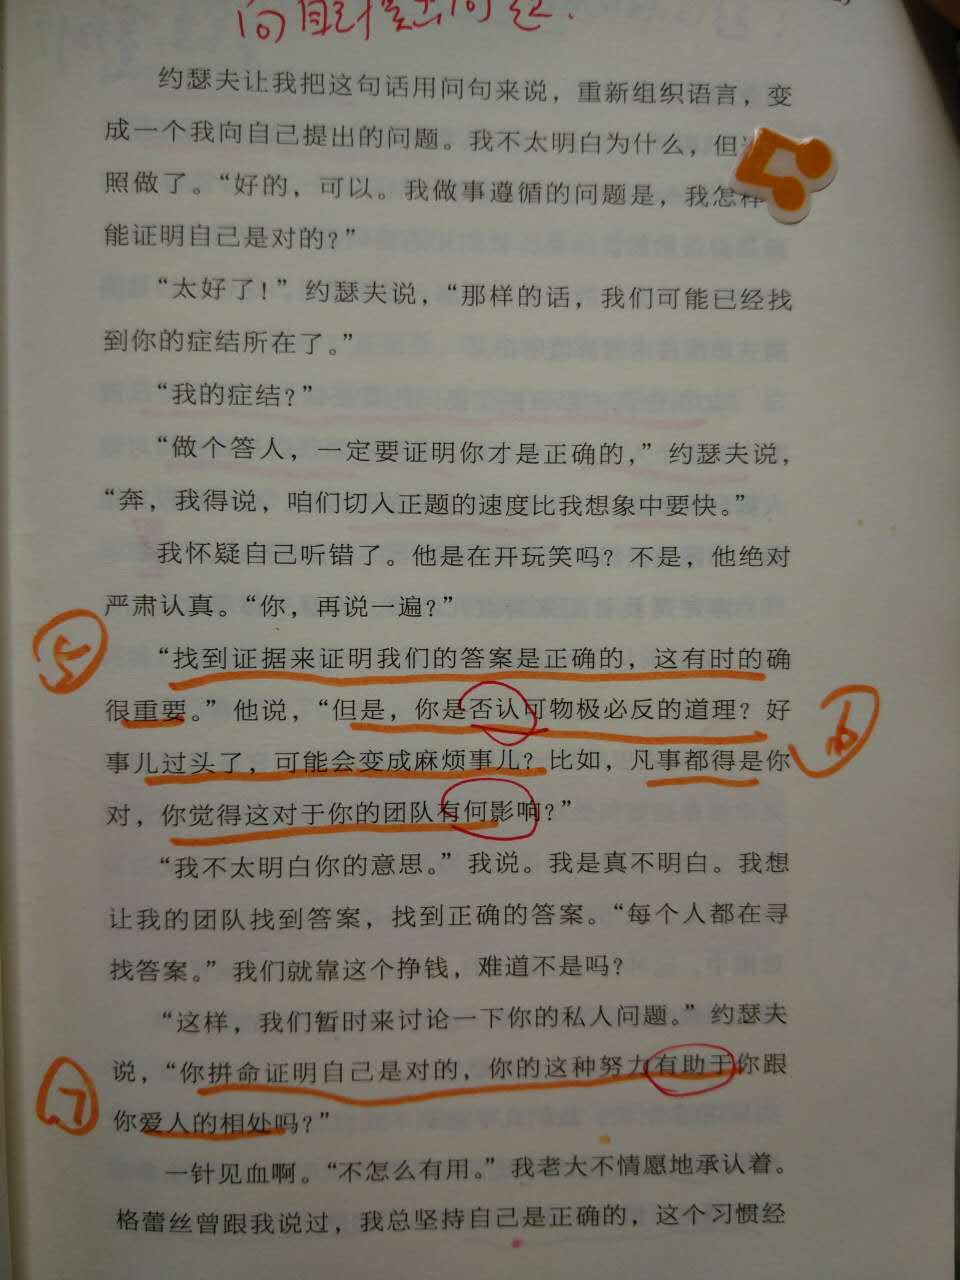 向自己提出问题.
约瑟夫让我把这句话用问句来说，重新组织语言，变
成一个我向自己提出的问题。我不太明白为什么，但
照做了。“好的，可以。我做事遵循的问题是，我怎样
能证明自己是对的？”
“太好了！”约瑟夫说，“那样的话，我们可能已经找
到你的症结所在了。”
“我的症结？”
“做个答人，一定要证明你才是正确的，”约瑟夫说，
“奔，我得说，咱们切入正题的速度比我想象中要快。”
我怀疑自己听错了。他是在开玩笑吗？不是，他绝对
严肃认真。“你，再说一遍？”
5
“找到证据来证明我们的答案是正确的，这有时的确
很重要。”他说，“但是，你是否认可物极必反的道理？好
6
事儿过头了，可能会变成麻烦事儿？比如，凡事都得是你
对，你觉得这对于你的团队有何影响？”
“我不太明白你的意思。”我说。我是真不明白。我想
让我的团队找到答案，找到正确的答案。“每个人都在寻
找答案。”我们就靠这个挣钱，难道不是吗？
“这样，我们暂时来讨论一下你的私人问题。”约瑟夫
说，“你拼命证明自己是对的，你的这种努力有助于你跟
7
你爱人的相处吗？”
一针见血啊。“不怎么有用。”我老大不情愿地承认着。
格蕾丝曾跟我说过，我总坚持自己是正确的，这个习惯经